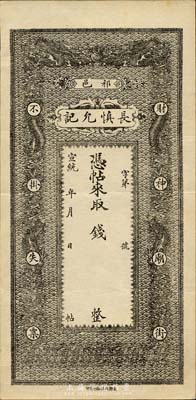 祁邑
長慎允記
財神廟街
不掛失票
字第 號
憑帖來取 錢 整
宣統 年 月 日 帖